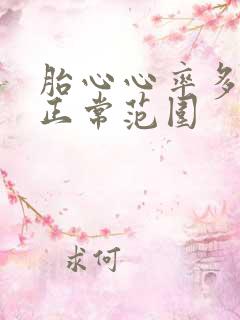 胎心心率多
正常范围
求何